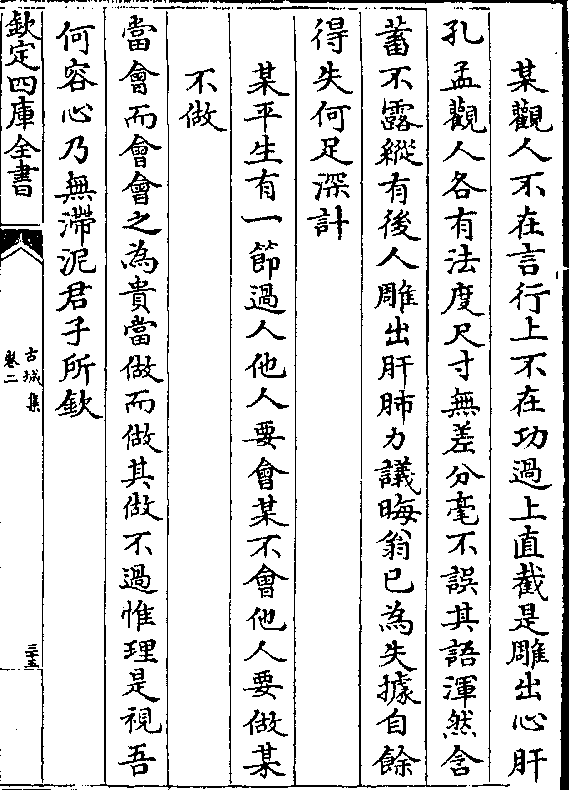 某觀人不在言行上不在功過上直截是雕出心肝
孔孟觀人各有法度尺寸無差分毫不誤其語渾然含
蓄不露縱有後人雕出肝肺力議晦翁已為失據自餘
得失何足深計
某平生有一節過人他人要會某不會他人要做某
不做
當會而會會之為貴當做而做其做不過惟理是視吾
何容心乃無滯泥君子所欽
欽定四庫全書
古城集
卷二
三五